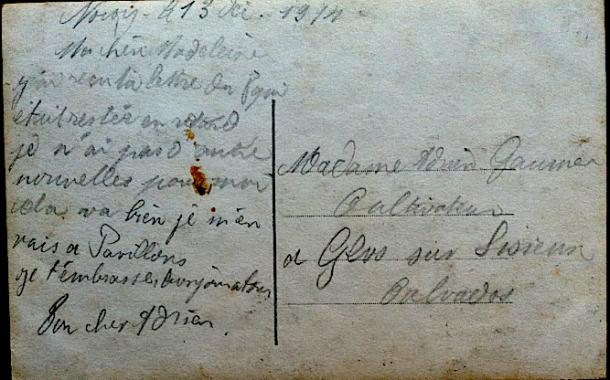 le 13 1914
Ma chère Madeleine
j'ai reçu ta lettre du 8 qui
était restée en retard
je n'ai pas d'autre
nouvelles pour moi
cela va bien je m'en
vais a Pavillons
je t'embrasse
Ton cher Adrien.
Madame Adrien
Cultivateur
a Glos sur Lisieux
Calvados